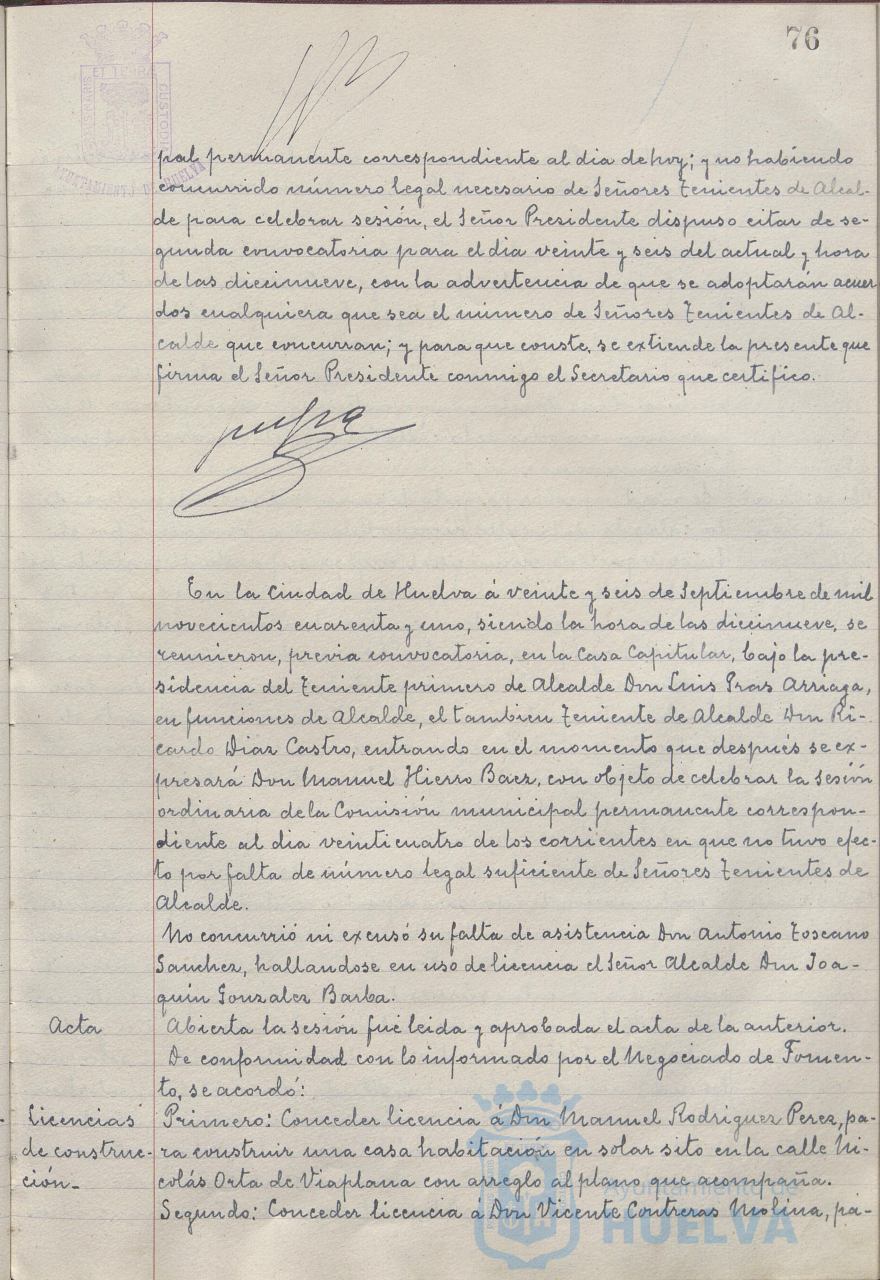 76
ET TERRÆ
CUSTODIA
AYUNTAMIENTO DE HUELVA
pal permanente correspondiente al dia de hoy; y no habiendo
concurrido número legal necesario de Señores Tenientes de Alcal-
de para celebrar sesión, el Señor Presidente dispuso citar de se-
gunda convocatoria para el dia veinte y seis del actual y hora
de las diecinueve, con la advertencia de que se adoptarán acuer
dos cualquiera que sea el número de Señores Tenientes de Al-
calde que concurran; y para que conste, se extiende la presente que
firma el Señor Presidente conmigo el Secretario que certifico.
En la Ciudad de Huelva á veinte y seis de Septiembre de mil
novecientos cuarenta y uno, siendo la hora de las diecinueve, se
reunieron, previa convocatoria, en la Casa Capitular, bajo la pre-
sidencia del Teniente primero de Alcalde Don Luis Pras Arriaga,
en funciones de Alcalde, el tambien Teniente de Alcalde Don Ri-
cardo Diaz Castro, entrando en el momento que después se ex-
presará Don Manuel Hierro Baez, con objeto de celebrar la sesión
ordinaria de la Comisión municipal permanente correspon-
diente al dia veinticuatro de los corrientes en que no tuvo efec-
to por falta de número legal suficiente de Señores Tenientes de
Alcalde.
No concurrió ni excusó su falta de asistencia Don Antonio Toscano
Sanchez, hallandose en uso de licencia el Señor Alcalde Don Joa-
quin Gonzalez Barba.
Acta
Abierta la sesión fué leida y aprobada el acta de la anterior.
De conformidad con lo informado por el Negociado de Fomen-
to, se acordó:
Licencias
de construc-
ción_
Primero: Conceder licencia á Don Manuel Rodriguez Perez, pa-
ra construir una casa habitación en solar sito en la calle Ni-
colás Orta de Viaplana con arreglo al plano que acompaña.
Segundo: Conceder licencia á Don Vicente Contreras Molina, pa-
Ayuntamiento de
HUELVA